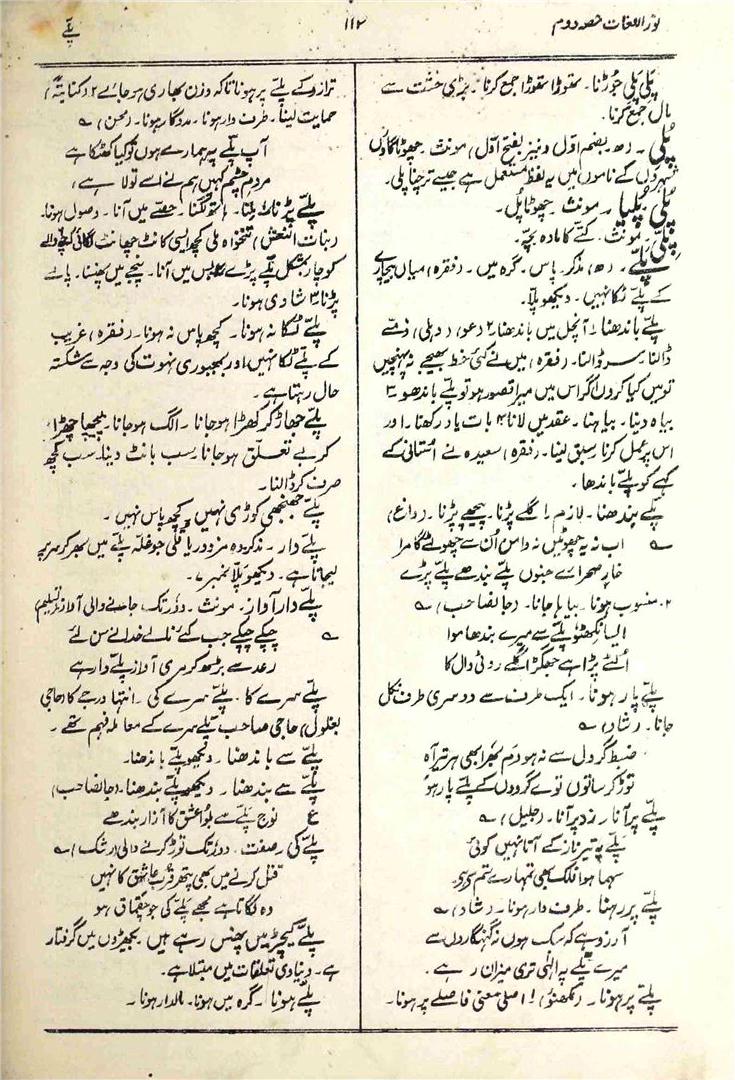 نور اللغات حصہ دوم
۱۱۲
پلّے
پَلی پَلی جوڑنا۔ تھوڑا تھوڑا جمع کرنا۔ بڑی خسّت سے
مال جمع کرنا۔
پَلی۔ (ھ۔ بضم اوّل و نیز بفتح اوّل) مونث۔ چھوٹا گاؤں
شہروں کے ناموں میں یہ لفظ مستعمل ہے جیسے ترچنا پلی۔
پُلی، پُلیا۔ مونث۔ چھوٹا پُل۔
پِلّی۔ مونث۔ کتّے کا مادہ بچّہ۔
پلّے۔ (ھ) مذکر۔ پاس۔ گرہ میں۔ (فقرہ) میاں بیچارے
کے پلّے ٹکا نہیں۔ دیکھو پلّا۔
پلّے باندھنا۔ ۱ آنچل میں باندھنا۔ ۲ (عو) (دہلی) ذمّے
ڈالنا۔ سر ڈالنا۔ (فقرہ) میں نے کئی خط بھیجے نہ پہنچیں
تو میں کیا کروں اگر اس میں میرا قصور ہو تو پلّے باندھو۔ ۳
بیاہ دینا۔ بیاہنا۔ عقد میں لانا۔ ۴ بات یاد رکھنا۔ اور
اس پر عمل کرنا۔ سبق لینا۔ (فقرہ) سعیدہ نے استانی کے
کہے کو پلّے باندھا۔
پلّے بندھنا۔ لازم۔ ۱ گلے پڑنا۔ پیچھے پڑنا۔ (داغ)
اب نہ یہ چھوٹیں نہ دامن اُن سے چھوٹے گا مرا
خارِ صحرا اے جنوں پلّے بندھے پلّے پڑے
۲۔ منسوب ہونا۔ بیاہا جانا۔ (جانصاحب)
ایسا نکھٹو پلّے سے میرے بندھا موا
اُلٹے پڑا ہے جھگڑا گلے روٹی دال کا
پلّے پار ہونا۔ ایک طرف سے دوسری طرف نکل
جانا۔ (رشاد)
ضبط گردل سے نہ ہو دم بھر ابھی ہر تیر آہ
توڑ کر ساتوں توے گردوں کے پلّے پار ہو
پلّے پر آنا۔ زد پر آنا۔ (جلیل)
پلّے پہ تیر ناز کے آتا نہیں کوئی
سہما ہوا فلک بھی تمہارے ستم سے
پلّے پر رہنا۔ طرف دار ہونا۔ (رشاد)
آرزو ہے کہ سبک ہوں نہ گنہگاروں سے
میرے پلّے پہ الٰہی تری میزان رہے۔
پلّے پر ہونا۔ (لکھنؤ) ۱ اصلی معنی فاصلے پر ہونا۔
ترازو کے پلّے پر ہونا تاکہ وزن بھاری ہو جائے۔ ۲ (کنایتہً)
حمایت لینا۔ طرف دار ہونا۔ مددگار ہونا۔ (محسن)
آپ پلّے پہ ہمارے ہوں تو کیا کھٹکا ہے
مردم چشم کہیں ہم نے اسے تولا ہے
پلّے پڑنا۔ ملنا۔ ہاتھ لگنا۔ حصّے میں آنا۔ وصول ہونا۔
(بنات النعش) تنخواہ ملی کچھ ایسی کانٹ چھانٹ لگائی کہ
کو چار بمشکل پلّے پڑے۔ ۲ بس میں آنا۔ پنجے میں پھنسنا۔ پالے
پڑنا۔ ۳ شادی ہونا۔
پلّے ٹکا نہ ہونا۔ کچھ پاس نہ ہونا۔ (فقرہ) غریب
کے پلّے ٹکا نہیں اور مجبوری نہوت کی وجہ سے شکستہ
حال رہتا ہے۔
پلّے جھاڑ کر کھڑا ہو جانا۔ الگ ہو جانا۔ پیچھا چھڑا
کر بے تعلّق ہو جانا۔ سب بانٹ دینا۔ سب کچھ
صرف کر ڈالنا۔
پلّے جھنجھی کوڑی نہیں۔ کچھ پاس نہیں۔
پلّے دار۔ مذکر۔ وہ مزدور یا قلی جو غلّہ پلّے میں بھر کر سر پر
لیجاتا ہے۔ دیکھو پلّا نمبر ۷۔
پلّے دار آواز۔ مونث۔ دور تک جانے والی آواز (تسلیم)
چپکے چپکے جب کئے نالے خدا نے سن لئے
رعد سے بڑھ کر مری آواز پلّے دار ہے
پلّے سرے کا۔ پلّے سرے کی۔ انتہا درجے کا (حاجی
بغلول) حاجی صاحب پلّے سرے کے معاملہ فہم تھے۔
پلّے سے باندھنا۔ دیکھو پلّے باندھنا۔
پلّے سے بندھنا۔ دیکھو پلّے بندھنا۔ (جانصاحب)
ع نوج پلّے سے بُوا عشق کا آزار بندھے
پلّے کی۔ صفت۔ دور تک توڑ کرنے والی (رشک)
قتل کرنے میں بھی پتھر قرب عاشق کا نہیں
وہ لگاتا ہے مجھے پلّے کی جو چقماق ہو
پلّے کیچڑ میں پھنس رہے ہیں۔ بکھیڑوں میں گرفتار
ہے۔ دنیاوی تعلقات میں مبتلا ہے۔
پلّے ہونا۔ گرہ میں ہونا۔ مالدار ہونا۔